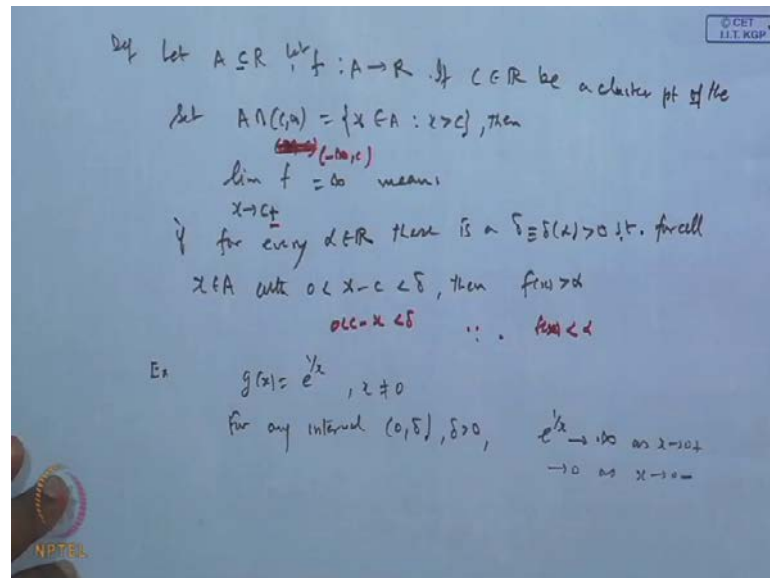 © CET
I.I.T. KGP
Def Let A ⊆ R, let f : A → R. If C ∈ R be a cluster pt of the
Set A∩(c,∞) = {x ∈ A : x > c}, then
(-∞, c)
lim f = ∞ means
x→c+
if for every α ∈ R there is a δ ≡ δ(α) > 0 s.t. for all
x ∈ A with 0 < x-c < δ, then f(x) > α
0<c-x<δ ∵ . f(x) < α
Ex g(x) = e^{1/x}, x ≠ 0
For any interval (0, δ), δ>0, e^{1/x} → ∞ as x→0+
→0 as x→0-
NPTEL